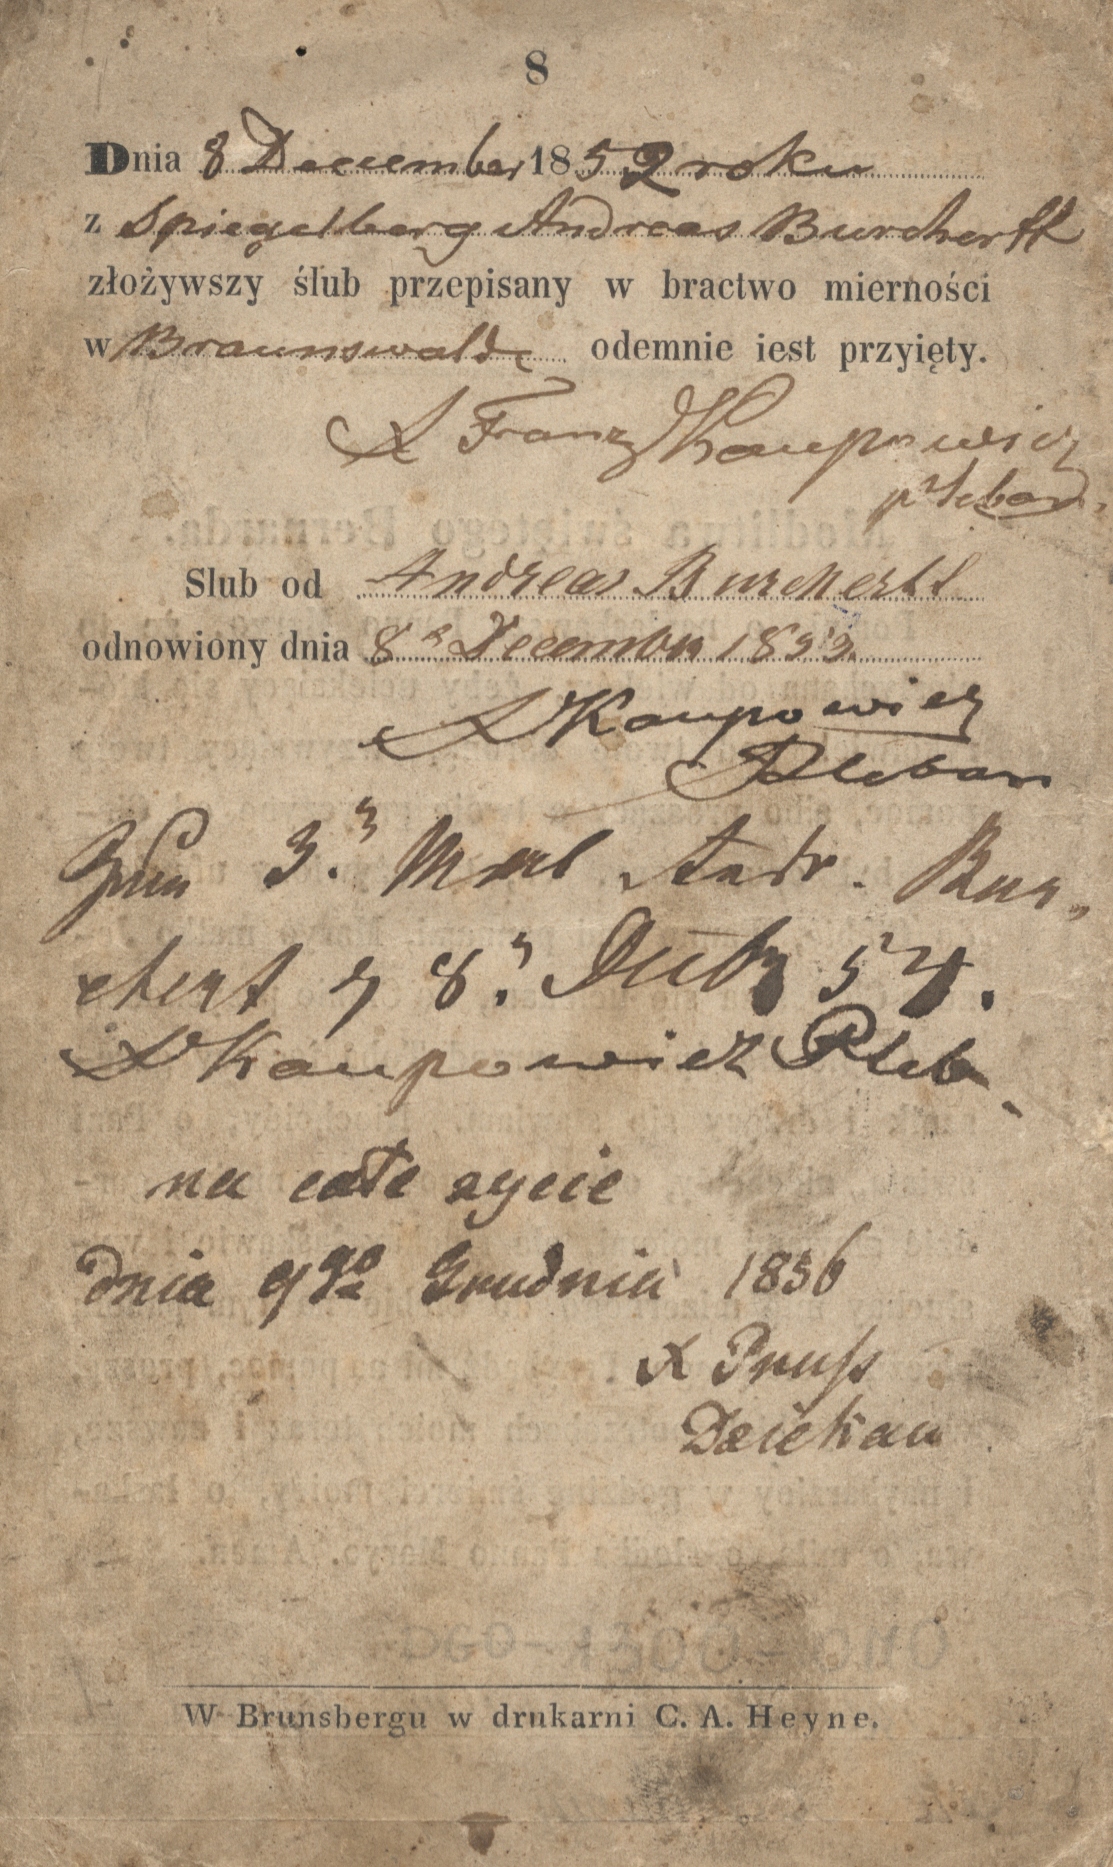 8
Dnia 8 December 1852 roku
z Spiegelberg Andreas Burchertt
złożywszy ślub przepisany w bractwo mierności
w Braunswaldę odemnie iest przyięty.
X Franz Kaupowicz
pleban.
Slub od Andreas Burchertt
odnowiony dnia 8 December 1853.
X Kaupowicz
Pleban
Zum 3. Mal Andr. Bur-
chert 8. 54.
X Kaupowicz Pleb.
na całe zycie
dnia 9go Grudnia 1856
X Pruss
Dziekan
W Brunsbergu w drukarni C. A. Heyne.